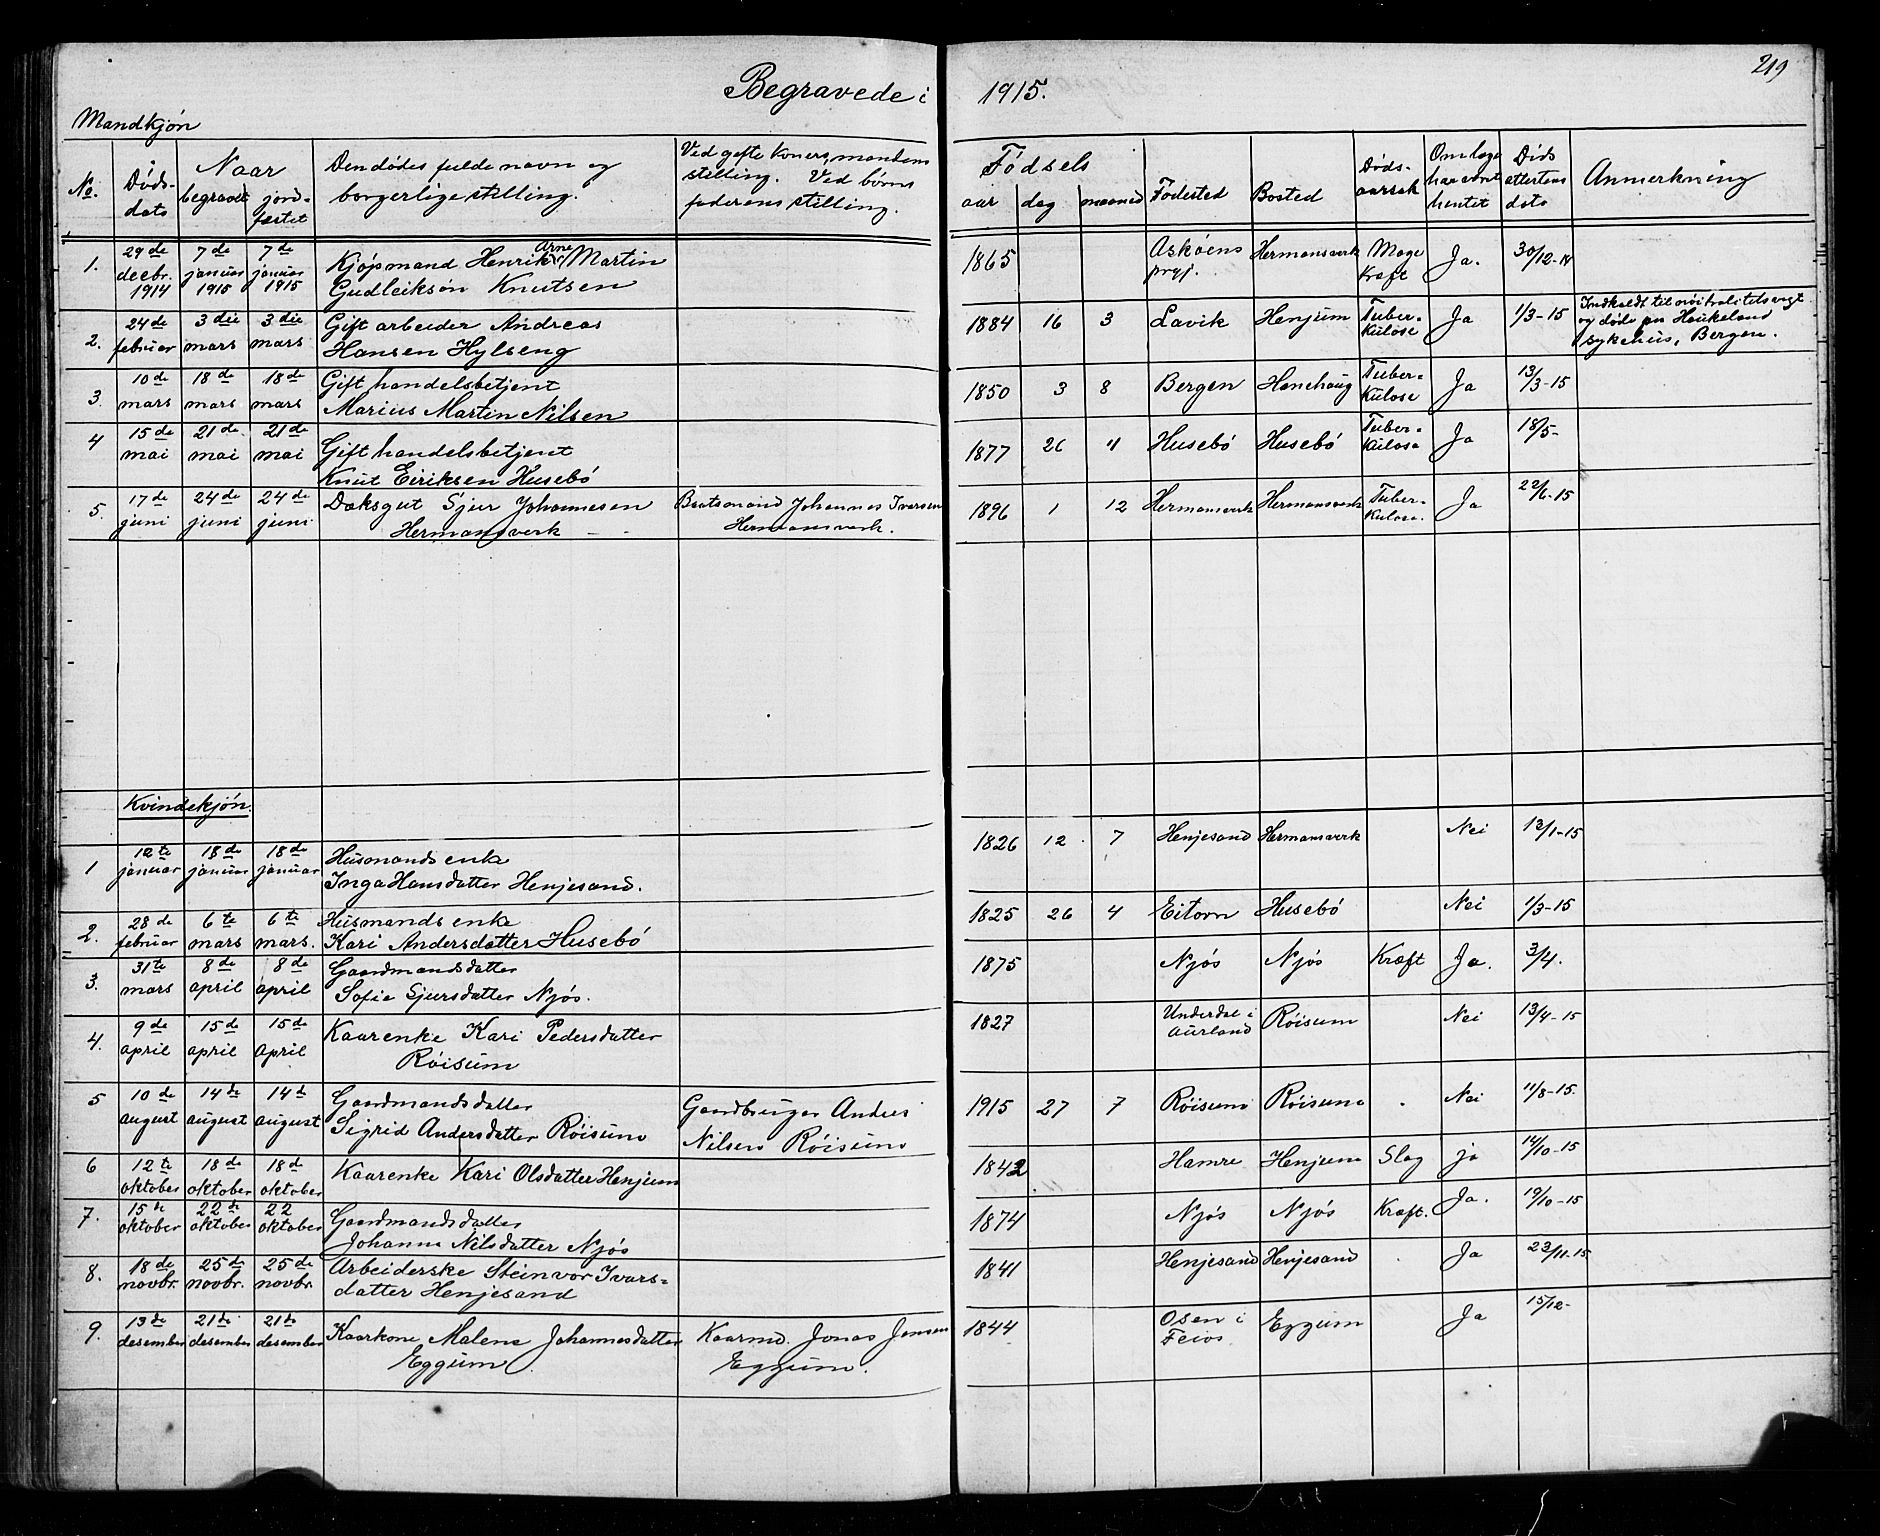 Begravede i 1915.
219
Mandkjøn
No. | Døds-dato | Naar begravet | jordfæstet | Den dødes fulde navn og borgerlige stilling. | Ved gifte koners mandens stilling. Ved børns faderens stilling. | Fødsels aar | dag | maaned | Fødested | Bosted | Døds-aarsak | Om læge har været hentet | Døds attestens dato | Anmerkning
1. | 29de decbr. 1914 | 7de januar 1915 | 7de januar 1915 | Kjøpmand Henrik Arne Martin Gudleiksøn Knutsen | | 1865 | | | Askøens prgj. | Hermansverk | Mage kræft | Ja. | 30/12-14
2. | 24de februar | 3die mars | 3die mars | Gift arbeider Andreas Hansen Hylseng | | 1884 | 16 | 3 | Lavik | Henjum | Tuber-kulose | Ja | 1/3-15 | Indkaldt til nøitralitetsvagt og døde paa Haukeland sykehus, Bergen.
3. | 10de mars | 18de mars | 18de mars | Gift handelsbetjent Marius Martin Nilsen | | 1850 | 3 | 8 | Bergen | Hanehaug | Tuber-kulose | Ja | 13/3-15
4 | 15de mai | 21de mai | 21de mai | Gift handelsbetjent Knut Eiriksen Husebø | | 1877 | 26 | 4 | Husebø | Husebø | Tuber-kulose | Ja | 18/5-
5. | 17de juni | 24de juni | 24de juni | Dæksgut Sjur Johannesen Hermansverk | Baatsmand Johannes Iversen Hermansverk. | 1896 | 1 | 12 | Hermansverk | Hermansverk | Tuber-kulose. | Ja | 22/6-15
Kvindekjøn.
1 | 12te januar | 18de januar | 18de januar | Husmands enke Inga Hansdatter Henjesand. | | 1826 | 12 | 7 | Henjesand | Hermansverk | | Nei | 12/1-15
2. | 28de februar | 6te mars | 6te mars. | Husmands enke Kari Andersdatter Husebø | | 1825 | 26 | 4 | Eitorn | Husebø | | Nei | 1/3-15
3. | 31te mars | 8de april | 8de april | Gaardmandsdatter Sofie Sjursdatter Njøs. | | 1875 | | | Njøs | Njøs | Kræft | Ja. | 3/4.
4. | 9de april | 15de april | 15de april | Kaarenke Kari Pedersdatter Røisum | | 1827 | | | Underdal i Aurland | Røisum | | Nei | 13/4-15
5 | 10de august | 14de august | 14d august | Gaardmandsdatter Sigrid Andersdatter Røisum | Gaardbruger Anders Nilsen Røisum | 1915 | 27 | 7 | Røisum | Røisum | | Nei | 11/8-15.
6 | 12te oktober | 18de oktober | 18de oktober | Kaarenke Kari Olsdatter Henjum | | 1842 | | | Hamre | Henjum | Slag | ja | 14/10-15
7. | 15de oktober | 22de oktober | 22 oktober | Gaardmandsdatter Johanna Nilsdatter Njøs | | 1874 | | | Njøs | Njøs | Kræft. | Ja. | 19/10-15
8. | 18de novbr. | 25de novbr. | 25de novbr. | Arbeiderske Steinvor Ivars-datter Henjesand | | 1841 | | | Henjesand | Henjesand | | Ja | 23/11-15
9. | 13de desember | 21de desember | 21de desember | Kaarkone Malene Johannesdatter Eggum | Kaarmd. Jonas Jensen Eggum. | 1844 | | | Osen i Feios | Eggum | | Ja | 15/12-